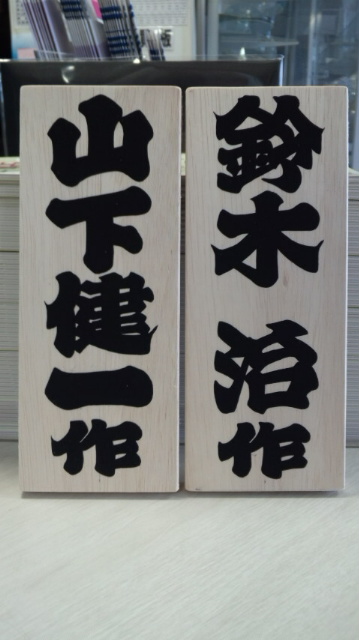 鈴木治作
山下健一作